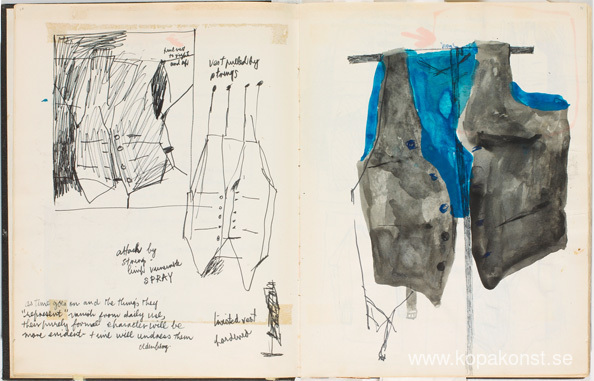 vest to right
and up
vest pulled by
strings
attach by
string
SPRAY
as time goes on and the things they
"represent" vanish from daily use,
their purely formal character will be
more evident + time will undress them
Oldenburg
vest
www.kopakonst.se